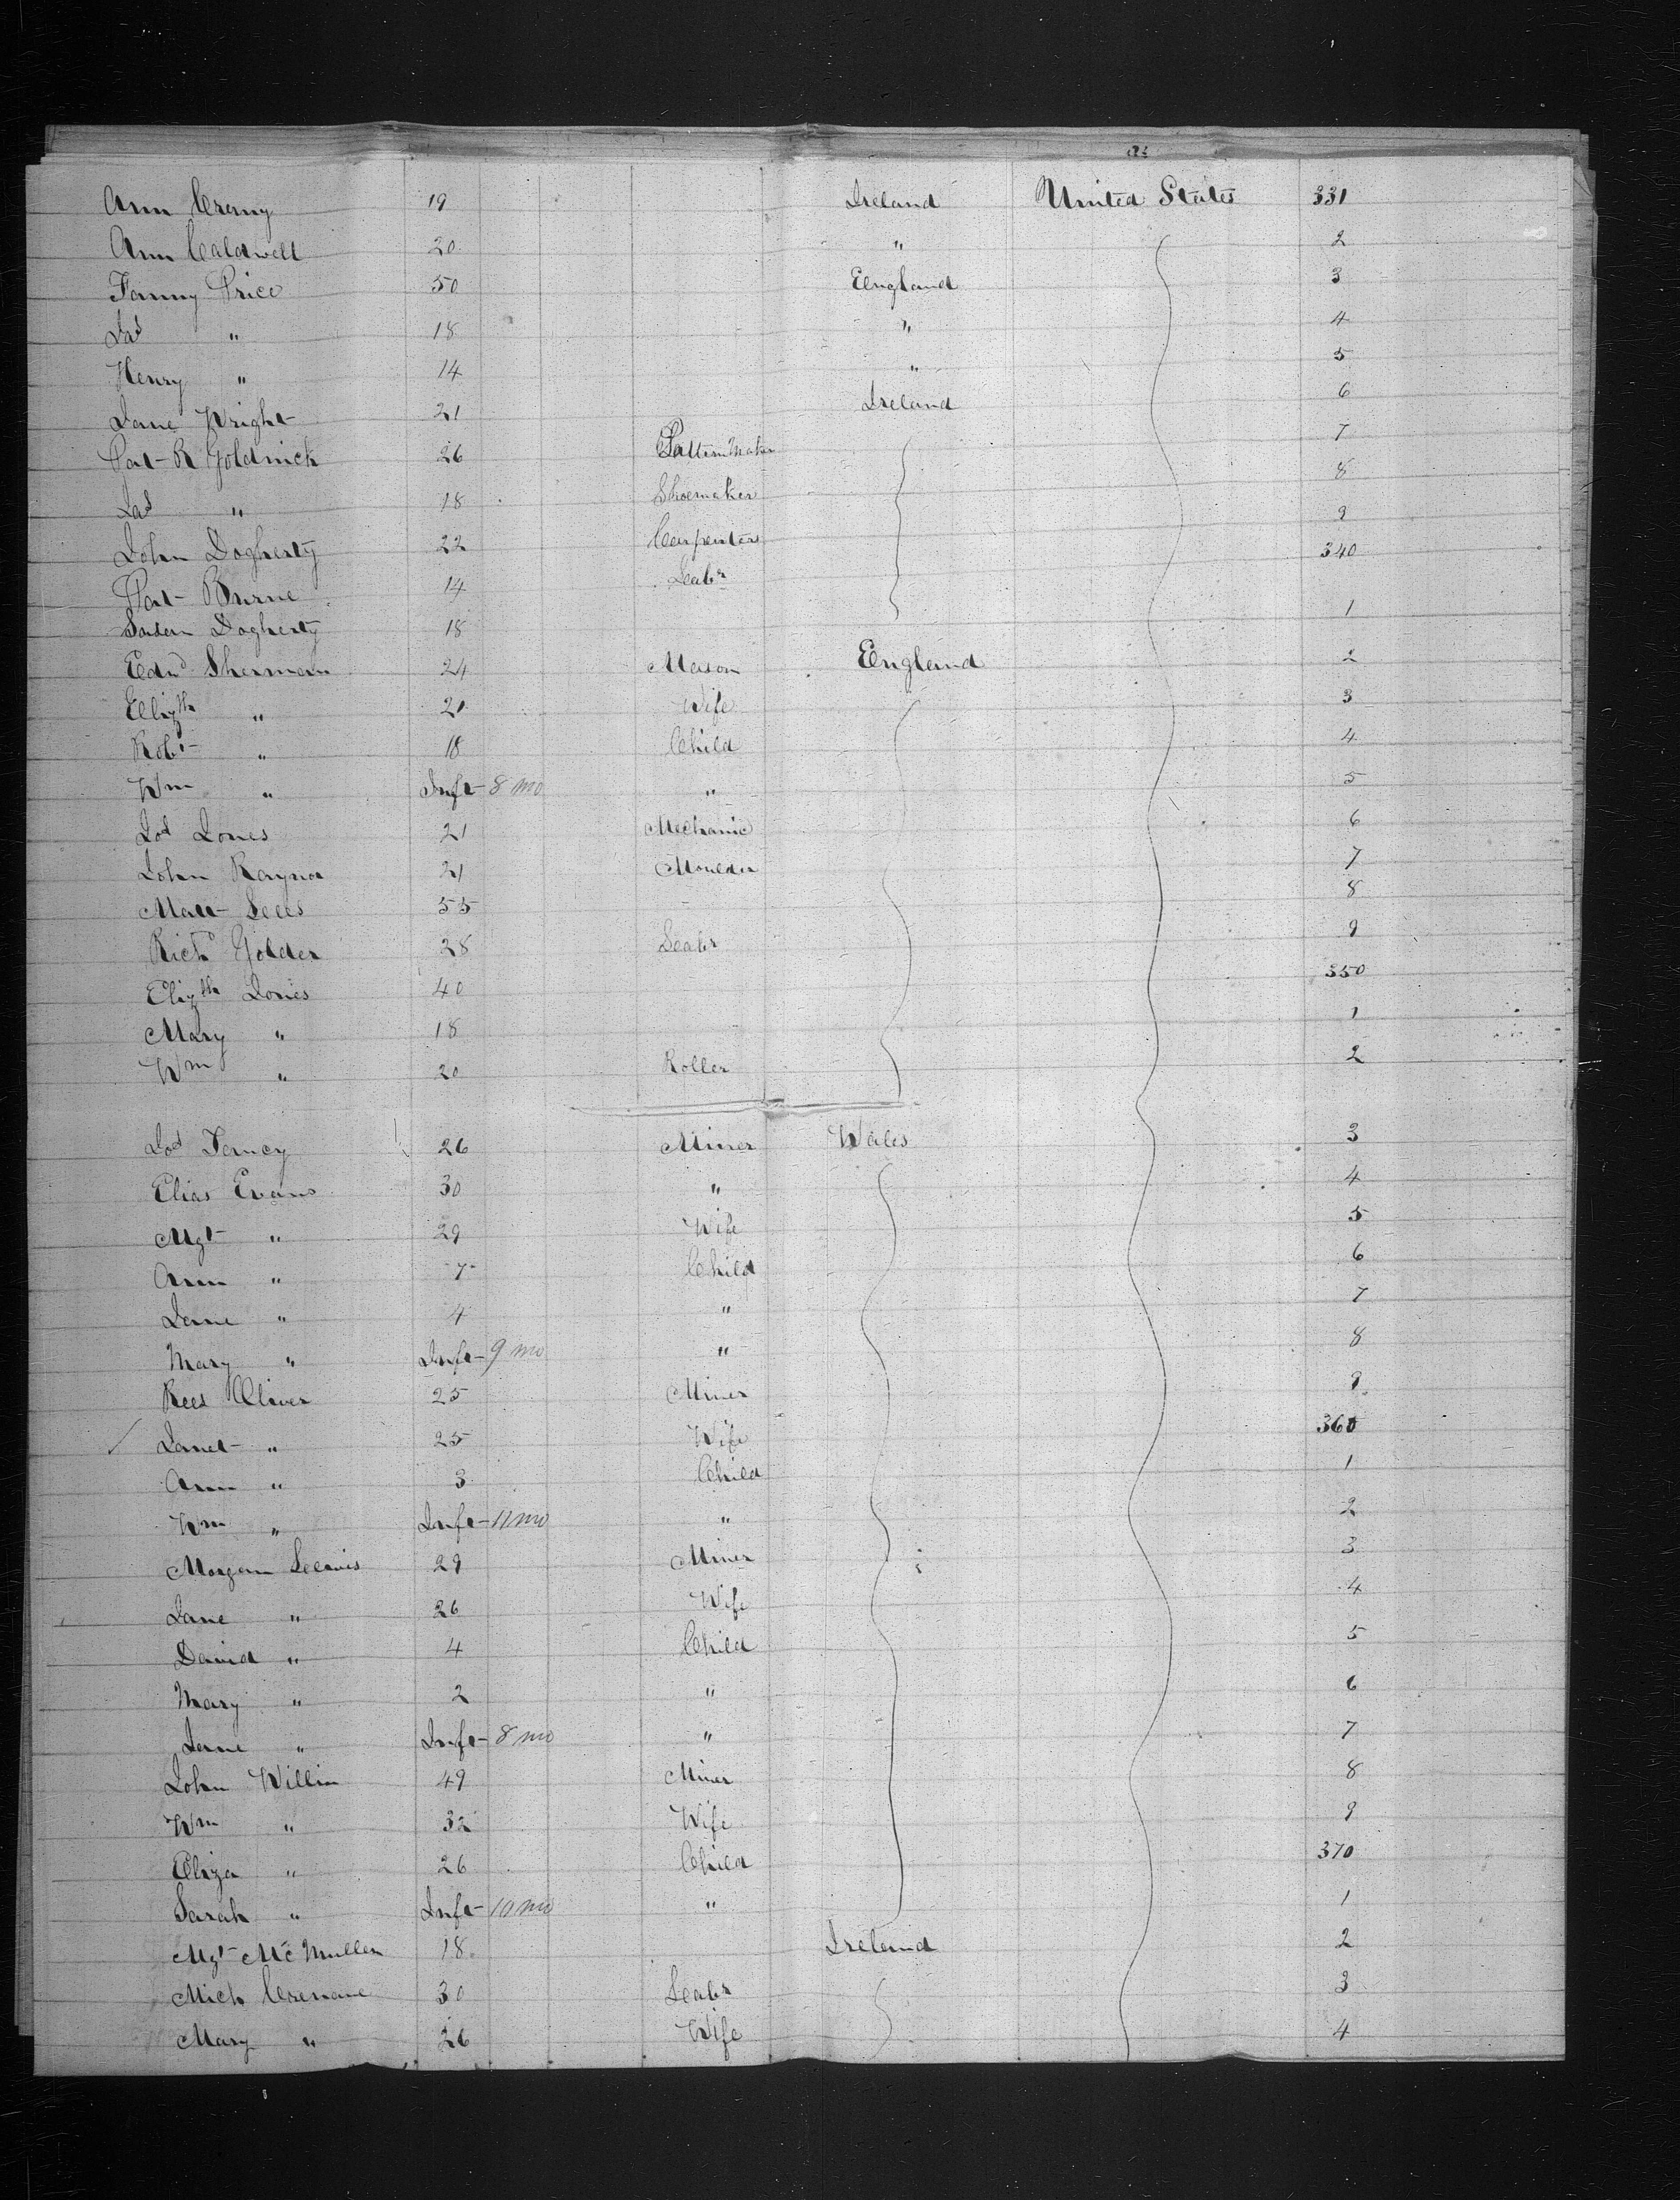 Ann Crany 19 Ireland United States 331
Ann Caldwell 20 " 2
Fanny Price 50 England 3
Jas " 18 " 4
Henry " 14 " 5
Jane Wright 21 Ireland 6
Pat R Goldrick 26 Pattern Maker 7
Jas " 18 Shoemaker 8
John Dogherty 22 Carpenter 9
Pat Burne 14 Labr 340
Dogherty 18 1
Edwd Sherman 24 Mason England 2
Elizth " 20 Wife 3
Robt " 18 Child 4
Wm " Inft 8 mo " 5
Jos Jones 21 Mechanic 6
John Rayner 21 Moulder 7
Matt Lees 55 8
Richd Golder 28 Labr 9
Elizth Jones 40 350
Mary " 18 1
Wm " 20 Roller 2
Jos 26 Miner Wales 3
Elias Evans 30 " 4
Mgt " 29 Wife 5
Ann " 7 Child 6
Jane " 4 " 7
Mary " Inft 9 mo " 8
Rees Oliver 25 Miner 9
Janet " 25 Wife 360
Ann " 3 Child 1
Wm " Inft 11 mo " 2
Morgan Lewis 29 Miner 3
Jane " 26 Wife 4
David " 4 Child 5
Mary " 2 " 6
Jane " Inft 8 mo " 7
John Willin 49 Miner 8
Wm " 32 Wife 9
Eliza " 26 Child 370
Sarah " Inft 10 mo " 1
Mgt McMullen 18 Ireland 2
Mich Crenane 30 Labr 3
Mary " 26 Wife 4